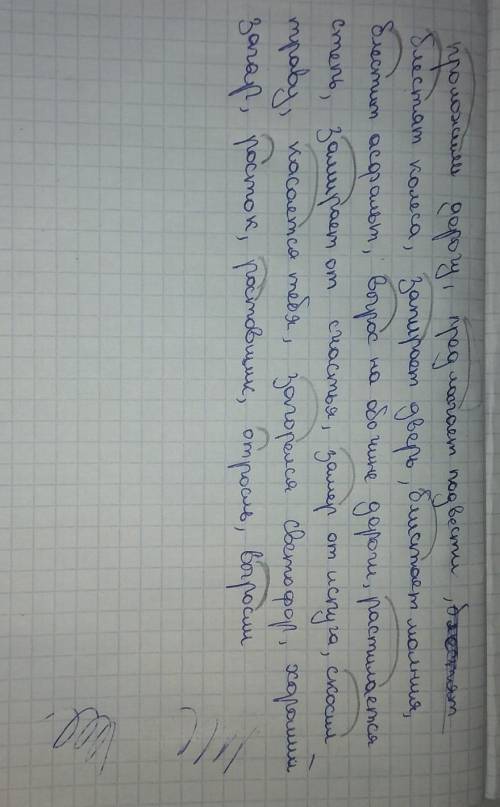 проложили дорогу, предлагает подвезти,
блестят колеса, запирает дверь, блистает молния,
блестит асфальт, вырос на обочине дороги, растилается
степь, замирает от счастья, замер от испуга, скосил
траву, касается тебя, загорелся светофор, хороший
загар, росток, ростовщик, отросль, выросли